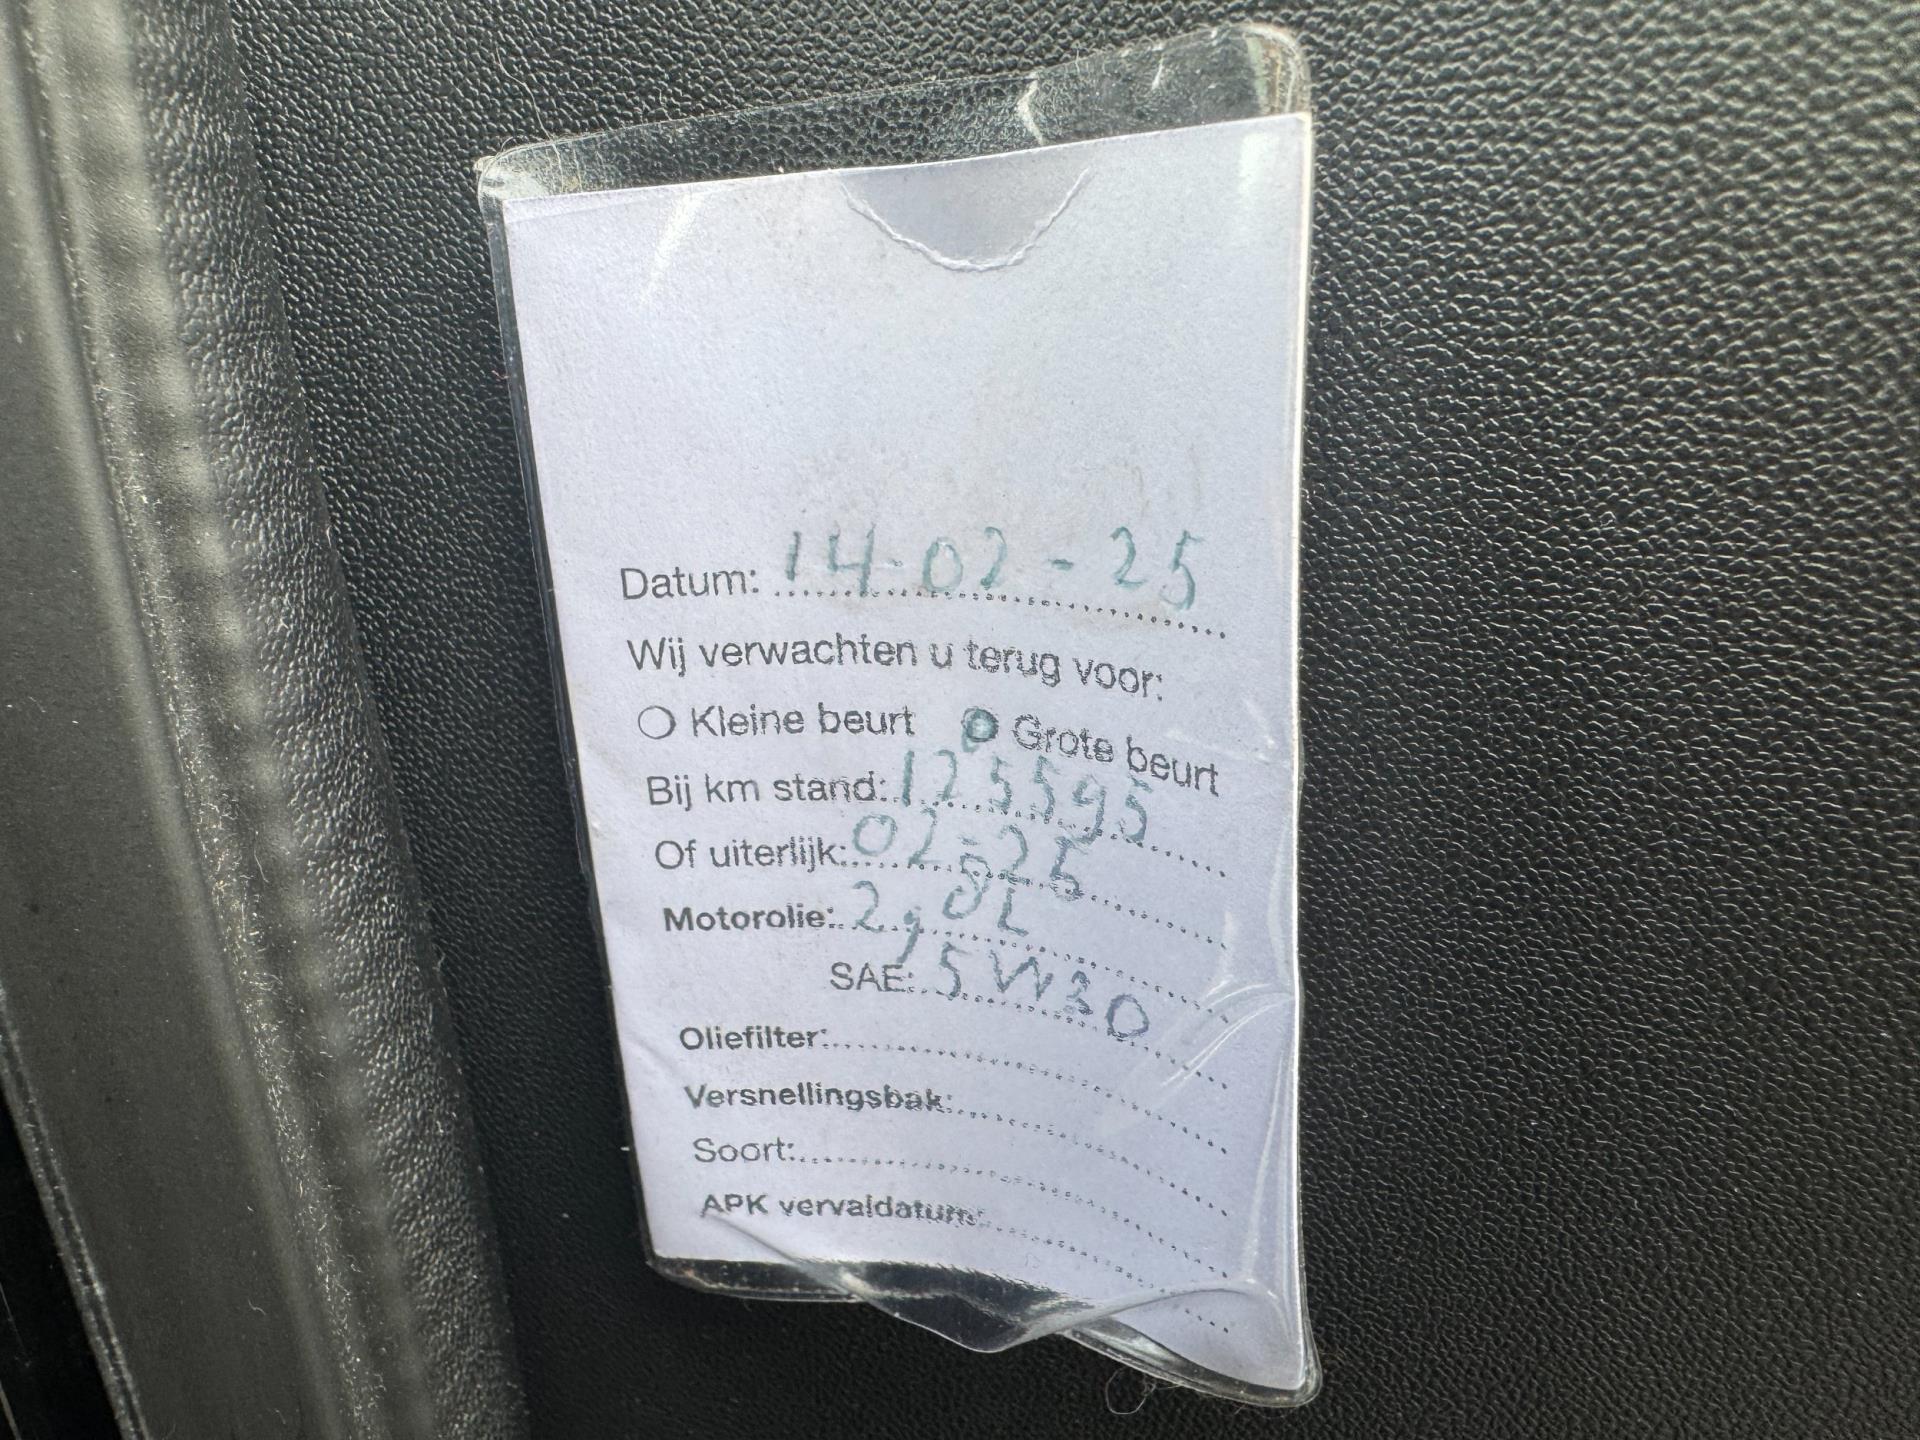 Datum: 14-02-25
Wij verwachten u terug voor:
Kleine beurt Grote beurt
Bij km stand: 125595
Of uiterlijk: 02-25
Motorolie: 2,8L
SAE: 5W30
Oliefilter:
Versnellingsbak:
Soort:
APK vervaldatum: